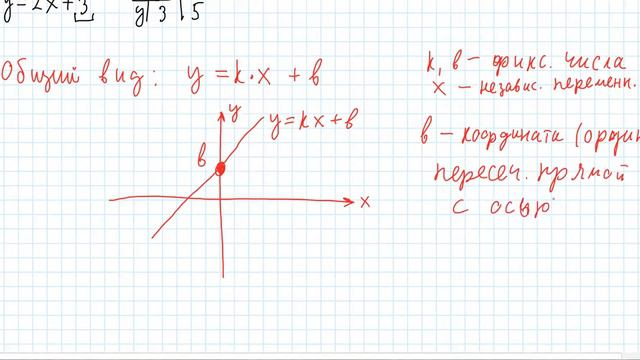 y=2x+3
y 3 5
Общий вид: y = k·x + в
k, в – фикс. числа
x – независ. перемен.
y
y=kx+в
в
x
в – координата (ордин
пересеч. прямой
с осью